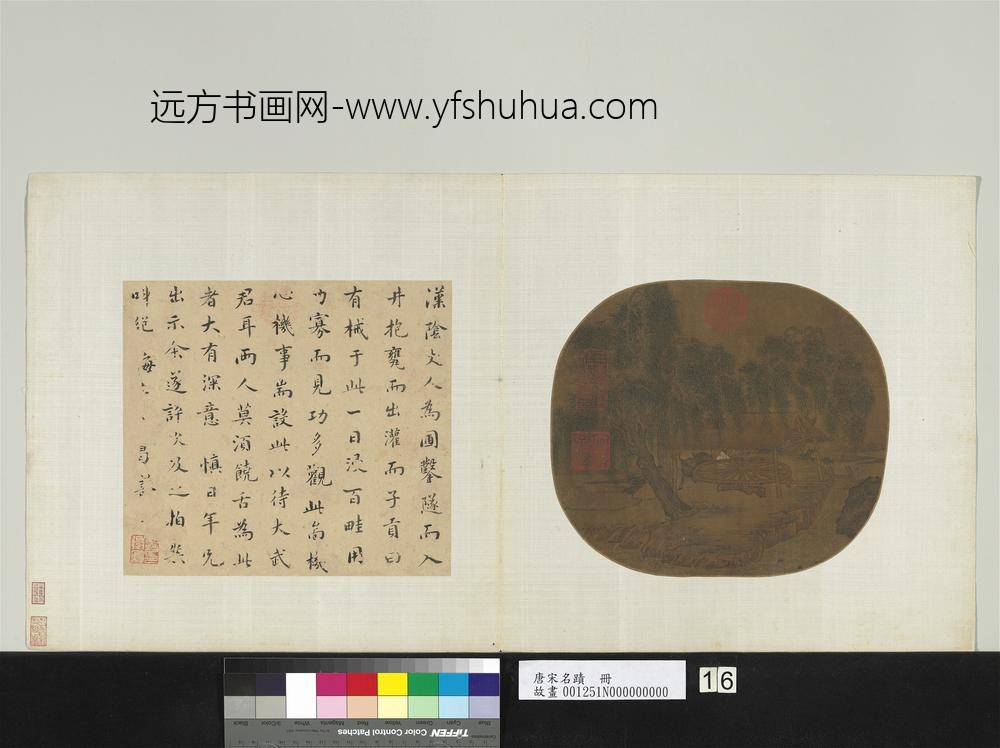 远方书画网-www.yfshuhua.com
漢陰丈人為圃鑿隧而入
井抱甕而出灌而子貢曰
有械于此一日浸百畦用
力寡而見功多觀此當機
心機事耑設此以待大武
君耳兩人莫須饒舌為此
者大有深意慎日年兄
出示余遂許次及之拍案
叫絕
唐宋名蹟 冊
故畫 001251N000000000
16
Black
3/Color
White
Magenta
Red
Yellow
Green
Cyan
Blue
TIFFEN Color Control Patches